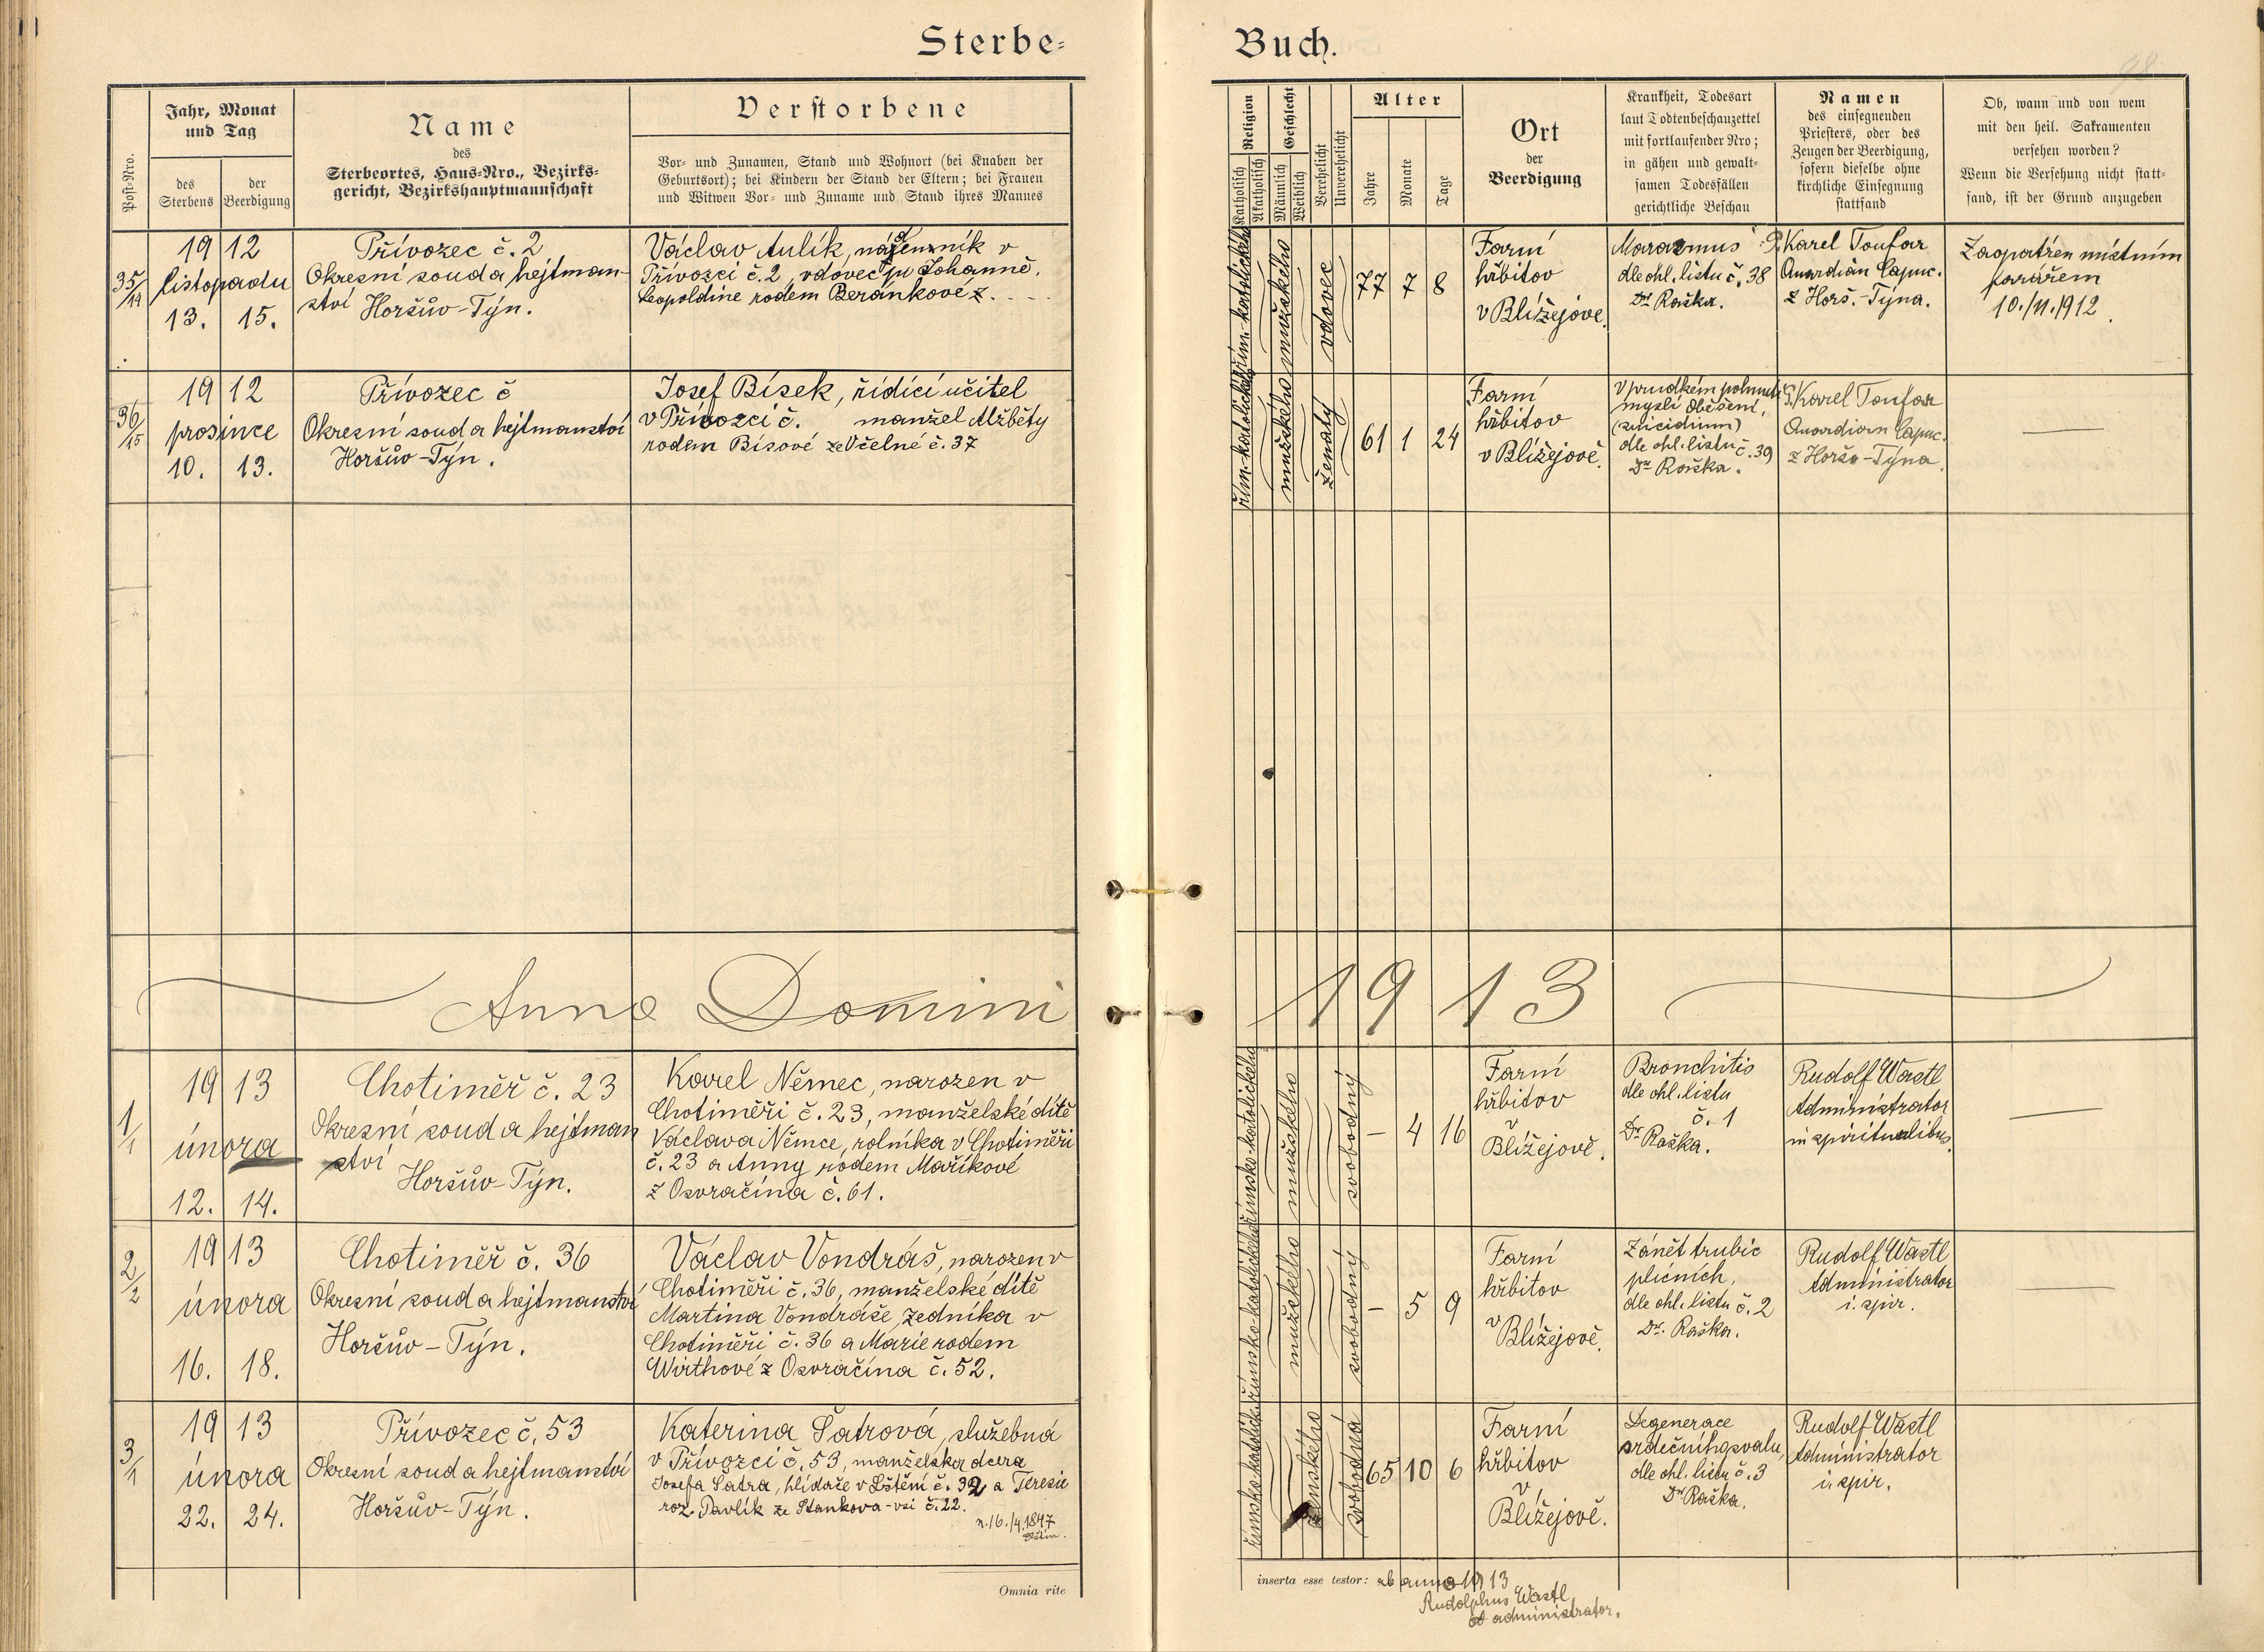 Sterbe=
Buch.
98
Post-Nro.
Jahr, Monat
und Tag
des
Sterbens
der
Beerdigung
Name
des
Sterbeortes, Haus-Nro., Bezirks-
gericht, Bezirkshauptmannschaft
Verstorbene
Vor- und Zunamen, Stand und Wohnort (bei Knaben der
Geburtsort); bei Kindern der Stand der Eltern; bei Frauen
und Witwen Vor- und Zuname und Stand ihres Mannes
Religion
Katholisch
Akatholisch
Geschlecht
Männlich
Weiblich
Verehelicht
Unverehelicht
Alter
Jahre
Monate
Tage
Ort
der
Beerdigung
Krankheit, Todesart
laut Todtenbeschauzettel
mit fortlaufender Nro;
in gähen und gewalt-
samen Todesfällen
gerichtliche Beschau
Namen
des einsegnenden
Priesters, oder des
Zeugen der Beerdigung,
sofern dieselbe ohne
kirchliche Einsegnung
stattfand
Ob, wann und von wem
mit den heil. Sakramenten
versehen worden?
Wenn die Versehung nicht statt-
fand, ist der Grund anzugeben
35/14
19 12
listopadu
13. 15.
Přívozec č. 2
Okresní soud a hejtman-
ství Horšův-Týn.
Václav Aulík, v
Přívozci č. 2, vdovec po Johanně,
Leopoldine rodem Beránkové z. - - -
řím.-katolického
mužského
vdovec
77 7 8
Farní
hřbitov
v Blížejově.
Marasmus
dle ohl. listu č. 38
Dr. Raška.
P. Karel Toufar
Quardián Capuc.
z Horš.-Týna.
Zaopatřen místním
farářem
10./11.1912
36/15
19 12
prosince
10. 13.
Přívozec č
Okresní soud a hejtmanství
Horšův-Týn.
Josef Bísek, řídící učitel
v Přívozci č. manžel Alžběty
rodem Bísové ze Včelné č. 37
řím.-katolického
mužského
ženatý
61 1 24
Farní
hřbitov
v Blížejově.
V prudkém pohnutí
mysli oběšení,
(suicidium)
dle ohl. listu č. 39
Dr. Raška.
P. Karel Toufar
Quardian Capuc.
z Horšo-Týna.
Anno Domini
1913
1/1
19 13
února
12. 14.
Chotiměř č. 23
Okresní soud a hejtman
ství
Horšův-Týn.
Karel Němec, narozen v
Chotiměři č. 23, manželské dítě
Václava Němce, rolníka v Chotiměři
č. 23 a Anny rodem Maříkové
z Osvračína č. 61.
římsko-katolického
mužského
svobodný
– 4 16
Farní
hřbitov
v
Blížejově.
Bronchitis
dle ohl. listu
č. 1
Dr. Raška.
Rudolf Wastl
Administrator
in spiritualibus.
2/2
19 13
února
16. 18.
Chotiměř č. 36
Okresní soud a hejtmanství
Horšův-Týn.
Václav Vondráš, narozen v
Chotiměři č. 36, manželské dítě
Martina Vondráše, zedníka v
Chotiměři č. 36 a Marie rodem
Wirthové z Osvračína č. 52.
římsko-katolického
mužského
svobodný
– 5 9
Farní
hřbitov
v
Blížejově.
Zánět trubic
plicních,
dle ohl. listu č. 2
Dr. Raška.
Rudolf Wastl
Administrator
i. spir.
3/1
19 13
února
22. 24.
Přívozec č. 53
Okresní soud a hejtmanství
Horšův-Týn.
Kateřina Šatrová, služebná
v Přívozci č. 53, manželská dcera
Josefa Šatra, hlídače v Lštění č. 32 a Teresie
roz. Pavlík ze Staňkova-vsi č. 22.
n. 16./4.1847
ženského
svobodná
65 10 6
Farní
hřbitov
v
Blížejově.
Degenerace
srdečního svalu,
dle ohl. listu č. 3
Dr. Raška.
Rudolf Wastl
Administrator
i. spir.
Omnia rite
inserta esse testor: ab anno 1913
Rudolphus Wastl
administrator.